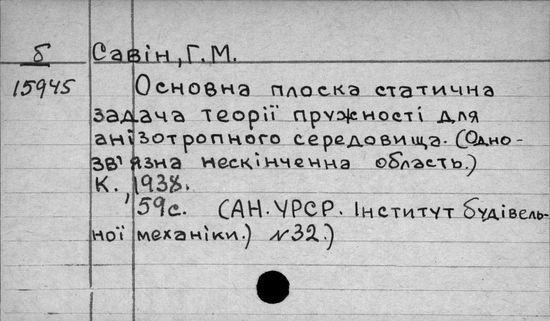 б
15945
Савін, Г.М.
Основна плоска статична
задача теорії пружності для
анізотропного середовища. (Одно-
зв'язна нескінченна область.)
К., 1938.
59с. (АН. УРСР. Інститут будівель-
ної механіки.) №32.)